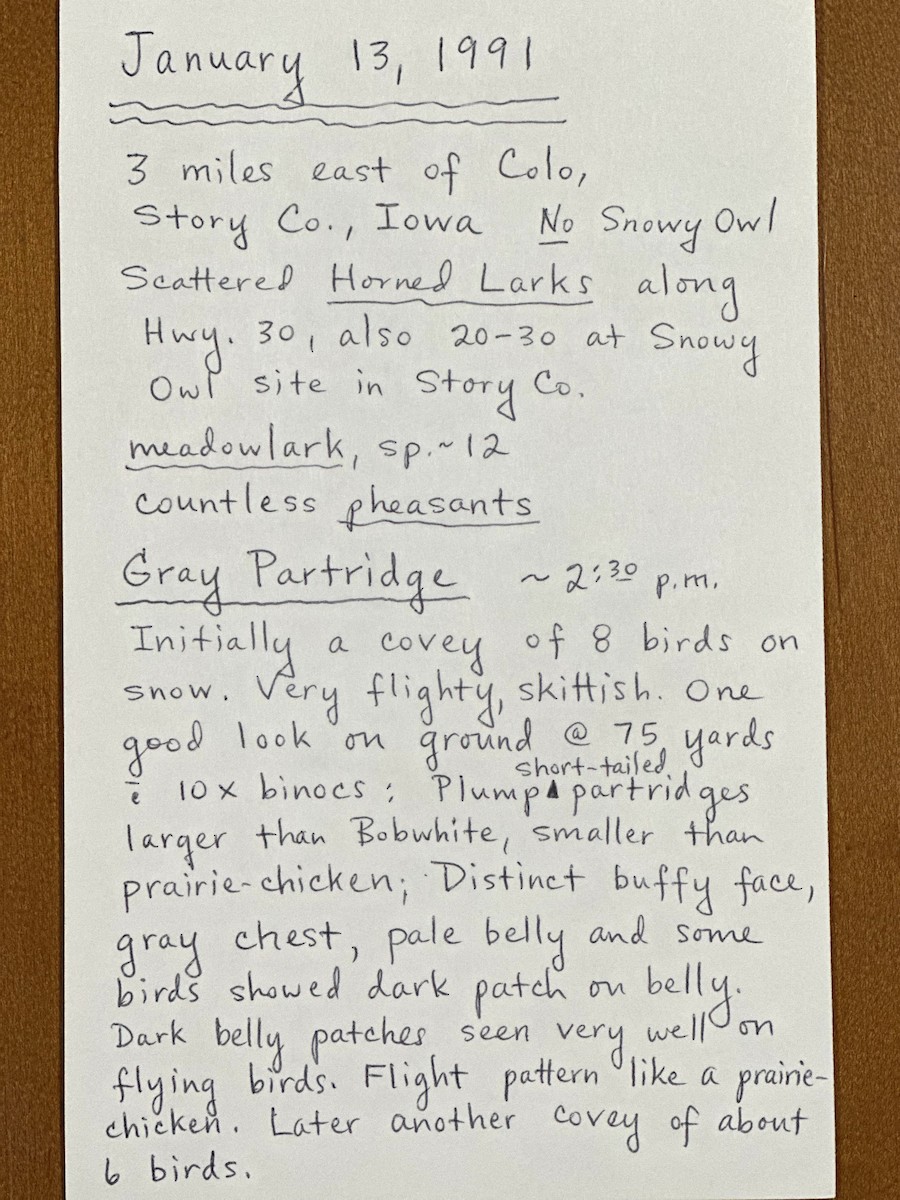 January 13, 1991
3 miles east of Colo,
Story Co., Iowa No Snowy Owl
Scattered Horned Larks along
Hwy. 30, also 20-30 at Snowy
Owl site in Story Co.
meadowlark, sp. ~ 12
countless pheasants
Gray Partridge ~ 2:30 p.m.
Initially a covey of 8 birds on
snow. Very flighty, skittish. One
good look on ground @ 75 yards
short-tailed
c̄ 10x binocs; Plump ▲ partridges
larger than Bobwhite, smaller than
prairie-chicken; Distinct buffy face,
gray chest, pale belly and some
birds showed dark patch on belly.
Dark belly patches seen very well on
flying birds. Flight pattern like a prairie-
chicken. Later another covey of about
6 birds.